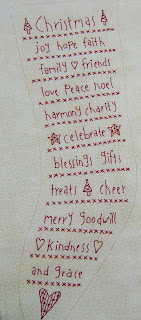 Christmas
joy hope faith
family friends
love Peace noel
harmony charity
celebrate
blessings gifts
treats cheer
merry goodwill
kindness
and grace